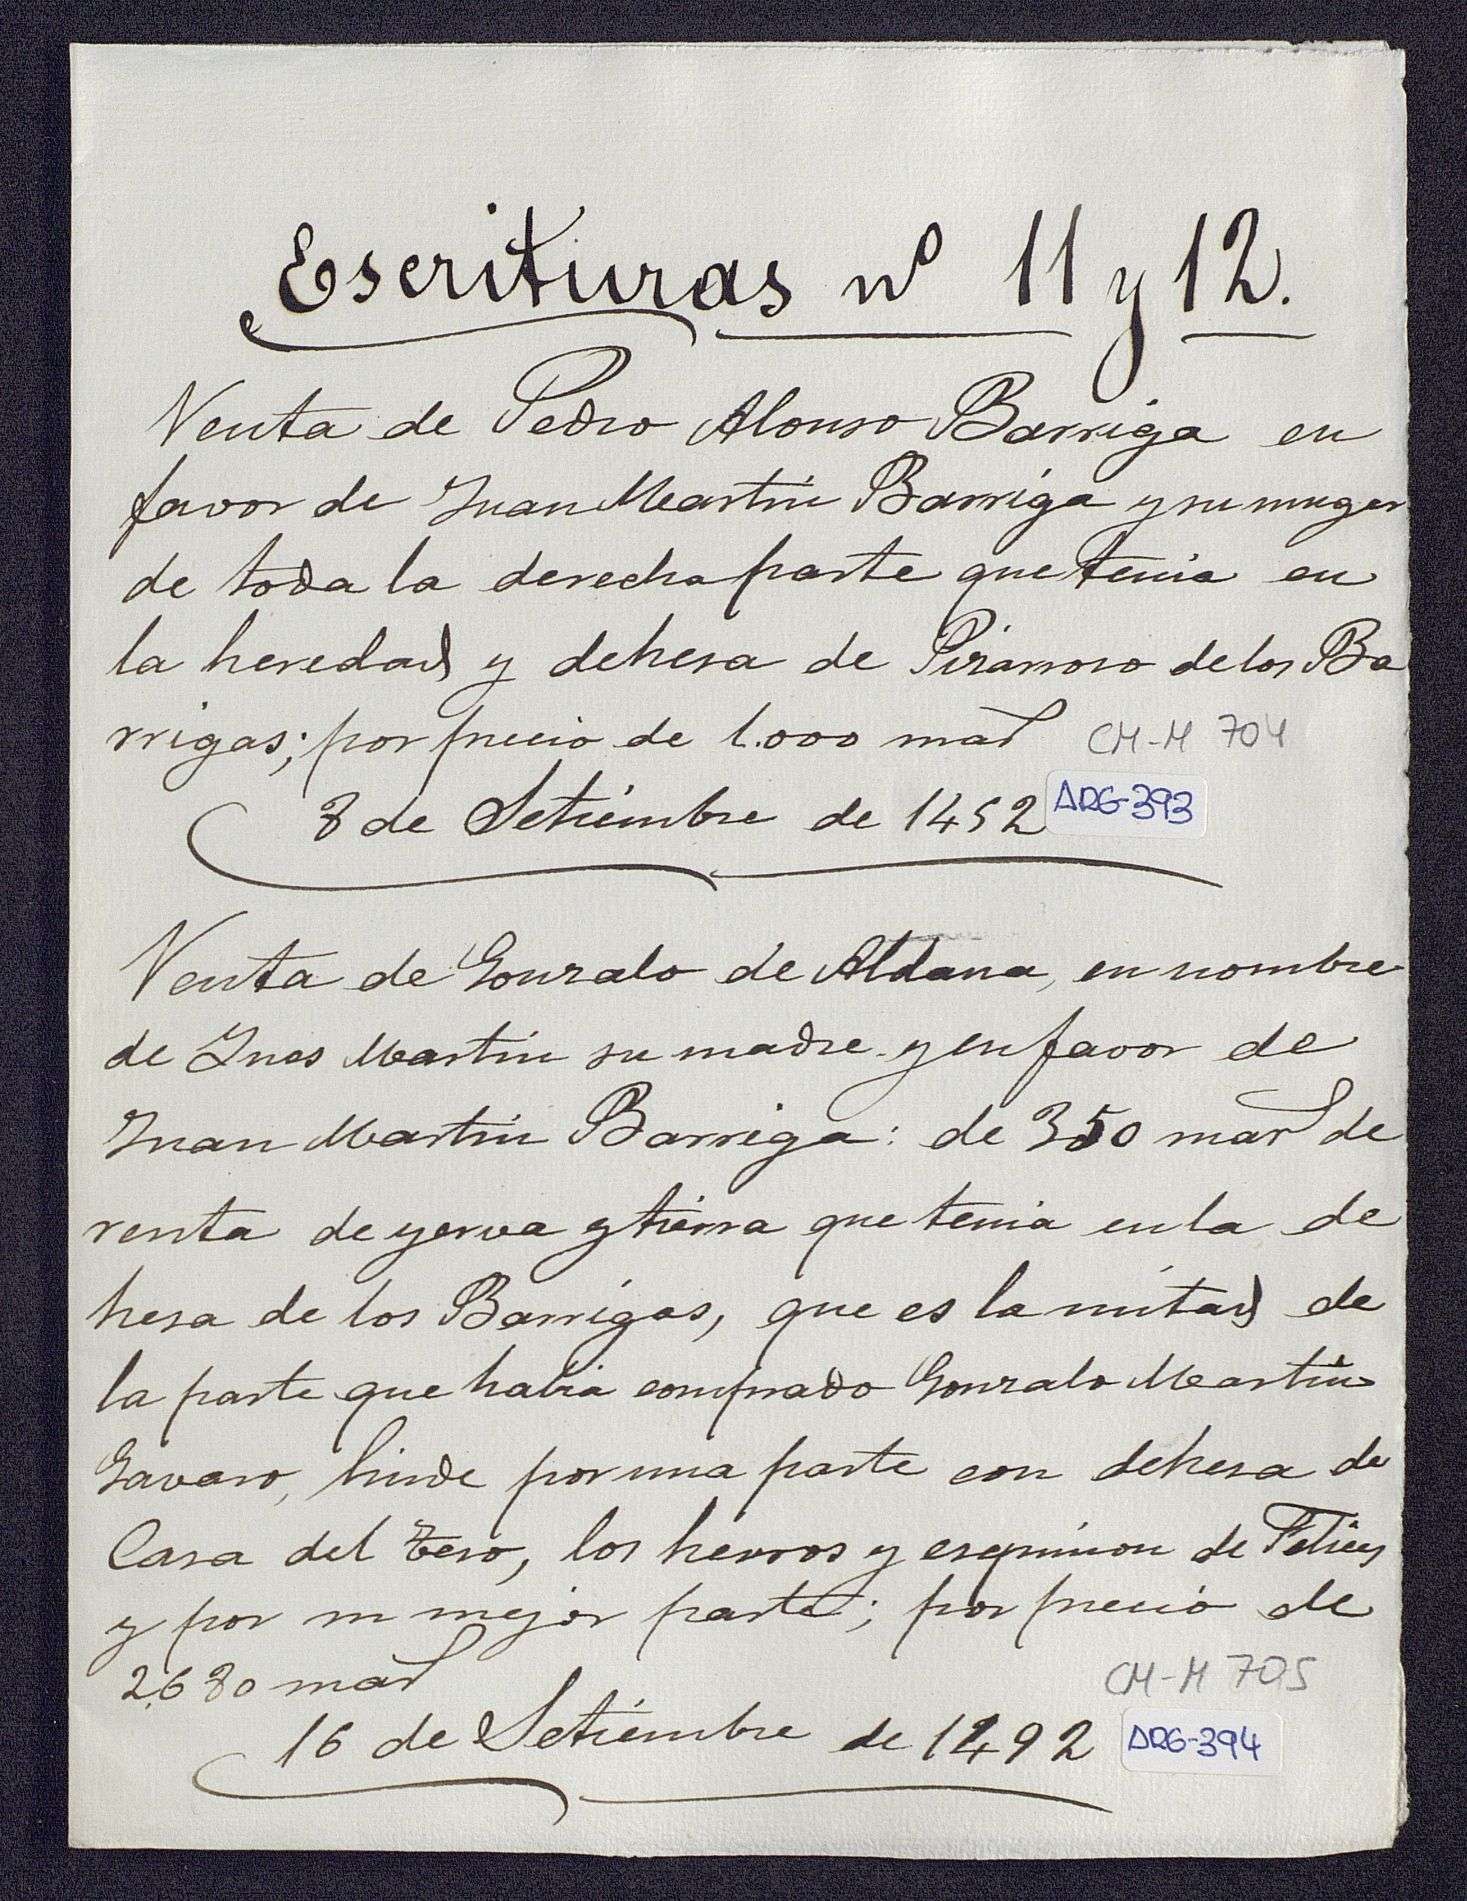 Escrituras nº 11 y 12.
Venta de Pedro Alonso Barriga en
favor de Juan Martin Barriga y su muger
de toda la derecha parte que tenia en
la heredad y dehesa de de los Ba
rrigas; por precio de 1.000 mad CM-M 704
8 de Setiembre de 1452 ARG-393
Venta de Gonzalo de Aldana, en nombre
de Ines Martin su madre y en favor de
Juan Martin Barriga: de 350 mard de
renta de yerva y tierra que tenia en la de
hesa de los Barrigas, que es la mitad de
la parte que habia comprado Gonzalo Martin
linde por una parte con dehesa de
Casa del los herros y de
y por su mejor parte; por precio de
2,680 mad CM-M 705
16 de Setiembre de 1492 ARG-394